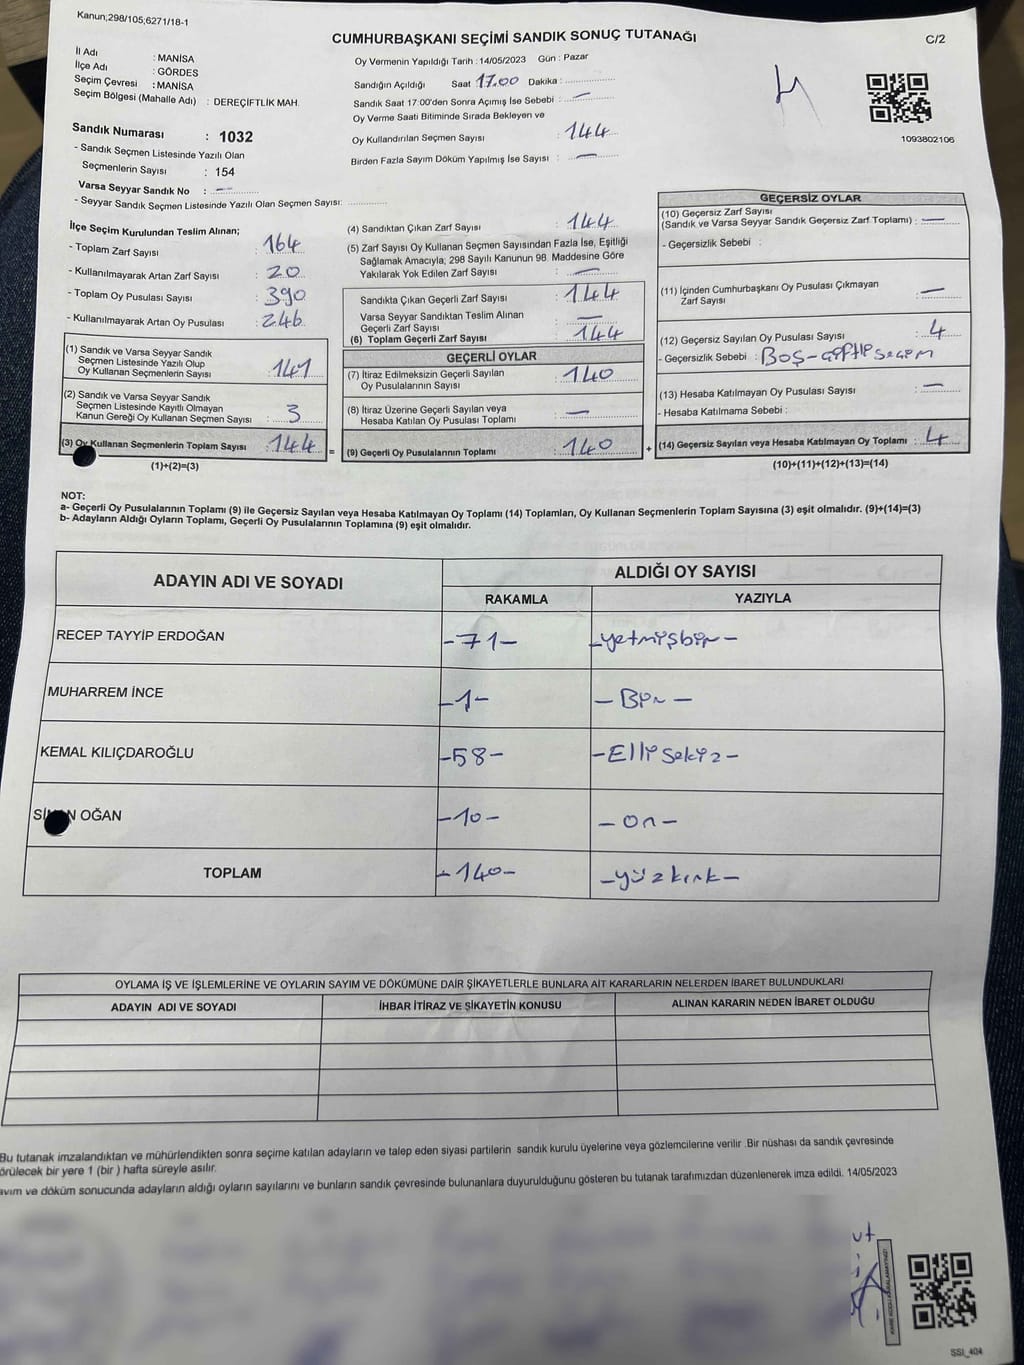 Kanun;298/105;6271/18-1
CUMHURBAŞKANI SEÇİMİ SANDIK SONUÇ TUTANAĞI
C/2
İl Adı : MANİSA
İlçe Adı : GÖRDES
Seçim Çevresi : MANİSA
Seçim Bölgesi (Mahalle Adı) : DEREÇİFTLİK MAH.
Oy Vermenin Yapıldığı Tarih : 14/05/2023 Gün : Pazar
Sandığın Açıldığı Saat 17.00 Dakika :
Sandık Saat 17:00'den Sonra Açımış İse Sebebi : —
Oy Verme Saati Bitiminde Sırada Bekleyen ve
Oy Kullandırılan Seçmen Sayısı : 144
Birden Fazla Sayım Döküm Yapılmış İse Sayısı : —
1093802106
Sandık Numarası : 1032
- Sandık Seçmen Listesinde Yazılı Olan
Seçmenlerin Sayısı : 154
Varsa Seyyar Sandık No : —
- Seyyar Sandık Seçmen Listesinde Yazılı Olan Seçmen Sayısı:
İlçe Seçim Kurulundan Teslim Alınan;
- Toplam Zarf Sayısı : 164
- Kullanılmayarak Artan Zarf Sayısı : 20
- Toplam Oy Pusulası Sayısı : 390
- Kullanılmayarak Artan Oy Pusulası : 246
(1) Sandık ve Varsa Seyyar Sandık
Seçmen Listesinde Yazılı Olup
Oy Kullanan Seçmenlerin Sayısı : 141
(2) Sandık ve Varsa Seyyar Sandık
Seçmen Listesinde Kayıtlı Olmayan
Kanun Gereği Oy Kullanan Seçmen Sayısı : 3
(3) Oy Kullanan Seçmenlerin Toplam Sayısı : 144
(1)+(2)=(3)
(4) Sandıktan Çıkan Zarf Sayısı : 144
(5) Zarf Sayısı Oy Kullanan Seçmen Sayısından Fazla İse, Eşitliği
Sağlamak Amacıyla; 298 Sayılı Kanunun 98. Maddesine Göre
Yakılarak Yok Edilen Zarf Sayısı : —
Sandıkta Çıkan Geçerli Zarf Sayısı : 144
Varsa Seyyar Sandıktan Teslim Alınan
Geçerli Zarf Sayısı : —
(6) Toplam Geçerli Zarf Sayısı : 144
GEÇERLİ OYLAR
(7) İtiraz Edilmeksizin Geçerli Sayılan
Oy Pusulalarının Sayısı : 140
(8) İtiraz Üzerine Geçerli Sayılan veya
Hesaba Katılan Oy Pusulası Toplamı : —
= (9) Geçerli Oy Pusulalarının Toplamı : 140 +
GEÇERSİZ OYLAR
(10) Geçersiz Zarf Sayısı
(Sandık ve Varsa Seyyar Sandık Geçersiz Zarf Toplamı) : —
- Geçersizlik Sebebi :
(11) İçinden Cumhurbaşkanı Oy Pusulası Çıkmayan
Zarf Sayısı : —
(12) Geçersiz Sayılan Oy Pusulası Sayısı : 4
- Geçersizlik Sebebi : Boş-çiftli seçim
(13) Hesaba Katılmayan Oy Pusulası Sayısı : —
- Hesaba Katılmama Sebebi :
(14) Geçersiz Sayılan veya Hesaba Katılmayan Oy Toplamı : 4
(10)+(11)+(12)+(13)=(14)
NOT:
a- Geçerli Oy Pusulalarının Toplamı (9) ile Geçersiz Sayılan veya Hesaba Katılmayan Oy Toplamı (14) Toplamları, Oy Kullanan Seçmenlerin Toplam Sayısına (3) eşit olmalıdır. (9)+(14)=(3)
b- Adayların Aldığı Oyların Toplamı, Geçerli Oy Pusulalarının Toplamına (9) eşit olmalıdır.
ADAYIN ADI VE SOYADI ALDIĞI OY SAYISI
RAKAMLA YAZIYLA
RECEP TAYYİP ERDOĞAN -71- -yetmişbir-
MUHARREM İNCE -1- -Bir-
KEMAL KILIÇDAROĞLU -58- -Elli sekiz-
OĞAN -10- -on-
TOPLAM -140- -yüzkırk-
OYLAMA İŞ VE İŞLEMLERİNE VE OYLARIN SAYIM VE DÖKÜMÜNE DAİR ŞİKAYETLERLE BUNLARA AİT KARARLARIN NELERDEN İBARET BULUNDUKLARI
ADAYIN ADI VE SOYADI İHBAR İTİRAZ VE ŞİKAYETİN KONUSU ALINAN KARARIN NEDEN İBARET OLDUĞU
Bu tutanak imzalandıktan ve mühürlendikten sonra seçime katılan adayların ve talep eden siyasi partilerin sandık kurulu üyelerine veya gözlemcilerine verilir .Bir nüshası da sandık çevresinde
örülecek bir yere 1 (bir ) hafta süreyle asılır.
ayım ve döküm sonucunda adayların aldığı oyların sayılarını ve bunların sandık çevresinde bulunanlara duyurulduğunu gösteren bu tutanak tarafımızdan düzenlenerek imza edildi. 14/05/2023
SSI_404